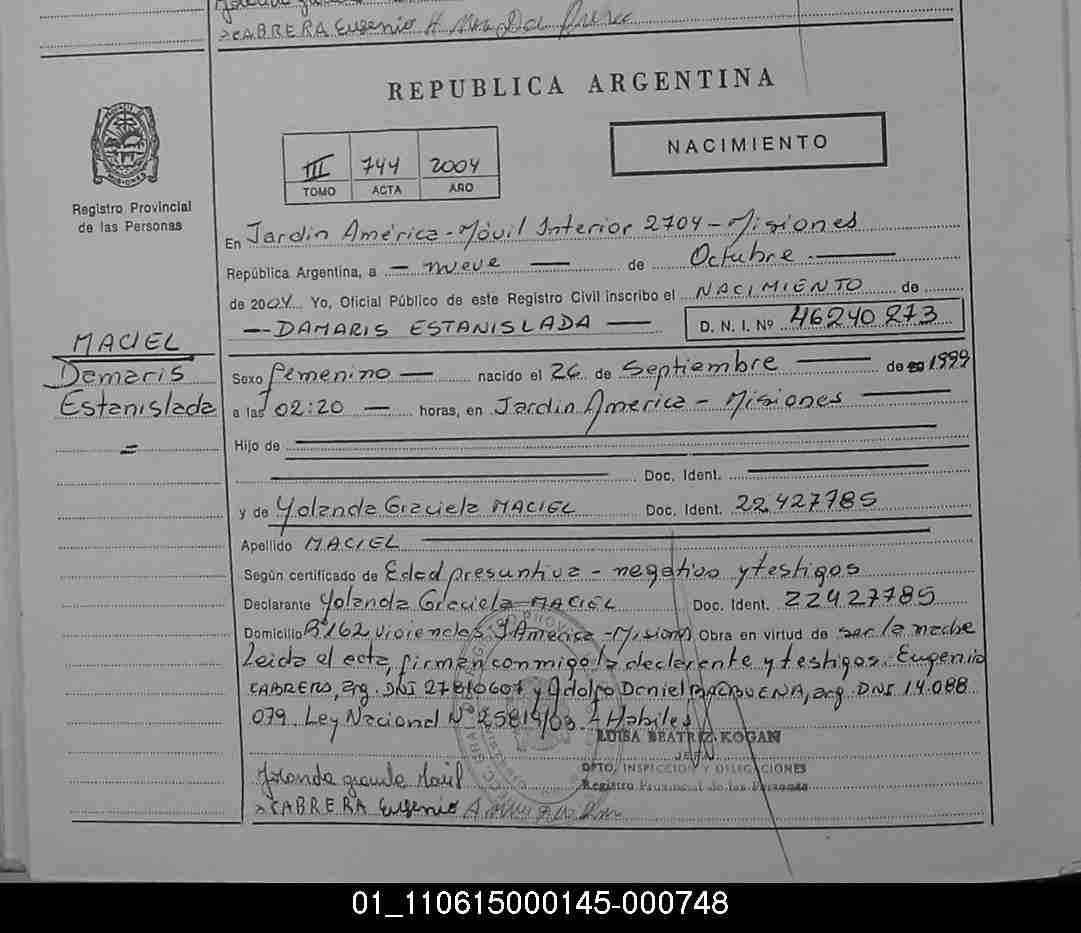 CABRERA Eugenio
REPUBLICA ARGENTINA
NACIMIENTO
III 744 2004
TOMO ACTA AÑO
Registro Provincial
de las Personas
MISIONES
En Jardín América - Móvil Interior 2704 - Misiones
República Argentina, a — nueve — de Octubre .—
de 2004 Yo, Oficial Público de este Registro Civil inscribo el NACIMIENTO de
— DAMARIS ESTANISLADA — D. N. I. Nº 46240273
MACIEL
Damaris
Estanislada
=
Sexo femenino — nacido el 26 de Septiembre — de 1999
a las 02:20 — horas, en Jardín América - Misiones —
Hijo de
Doc. Ident.
y de Yolanda Graciela MACIEL Doc. Ident. 22427785
Apellido MACIEL
Según certificado de Edad presuntiva - negativo y testigos
Declarante Yolanda Graciela MACIEL Doc. Ident. 22427785
Domicilio Bº 162 viviendas J. América - Misiones Obra en virtud de ser la madre
Leida el acta, firman conmigo la declarante y testigos: Eugenio
CABRERA, arg. DNI 27810607 y Adolfo Daniel arg. DNI 14.088
079. Ley Nacional Nº 25819/03 - Habiles
LUISA BEATRIZ KOGAN
JEFA
DPTO. INSPECCION Y DELEGACIONES
Registro Provincial de las Personas
CABRERA Eugenio
01_110615000145-000748